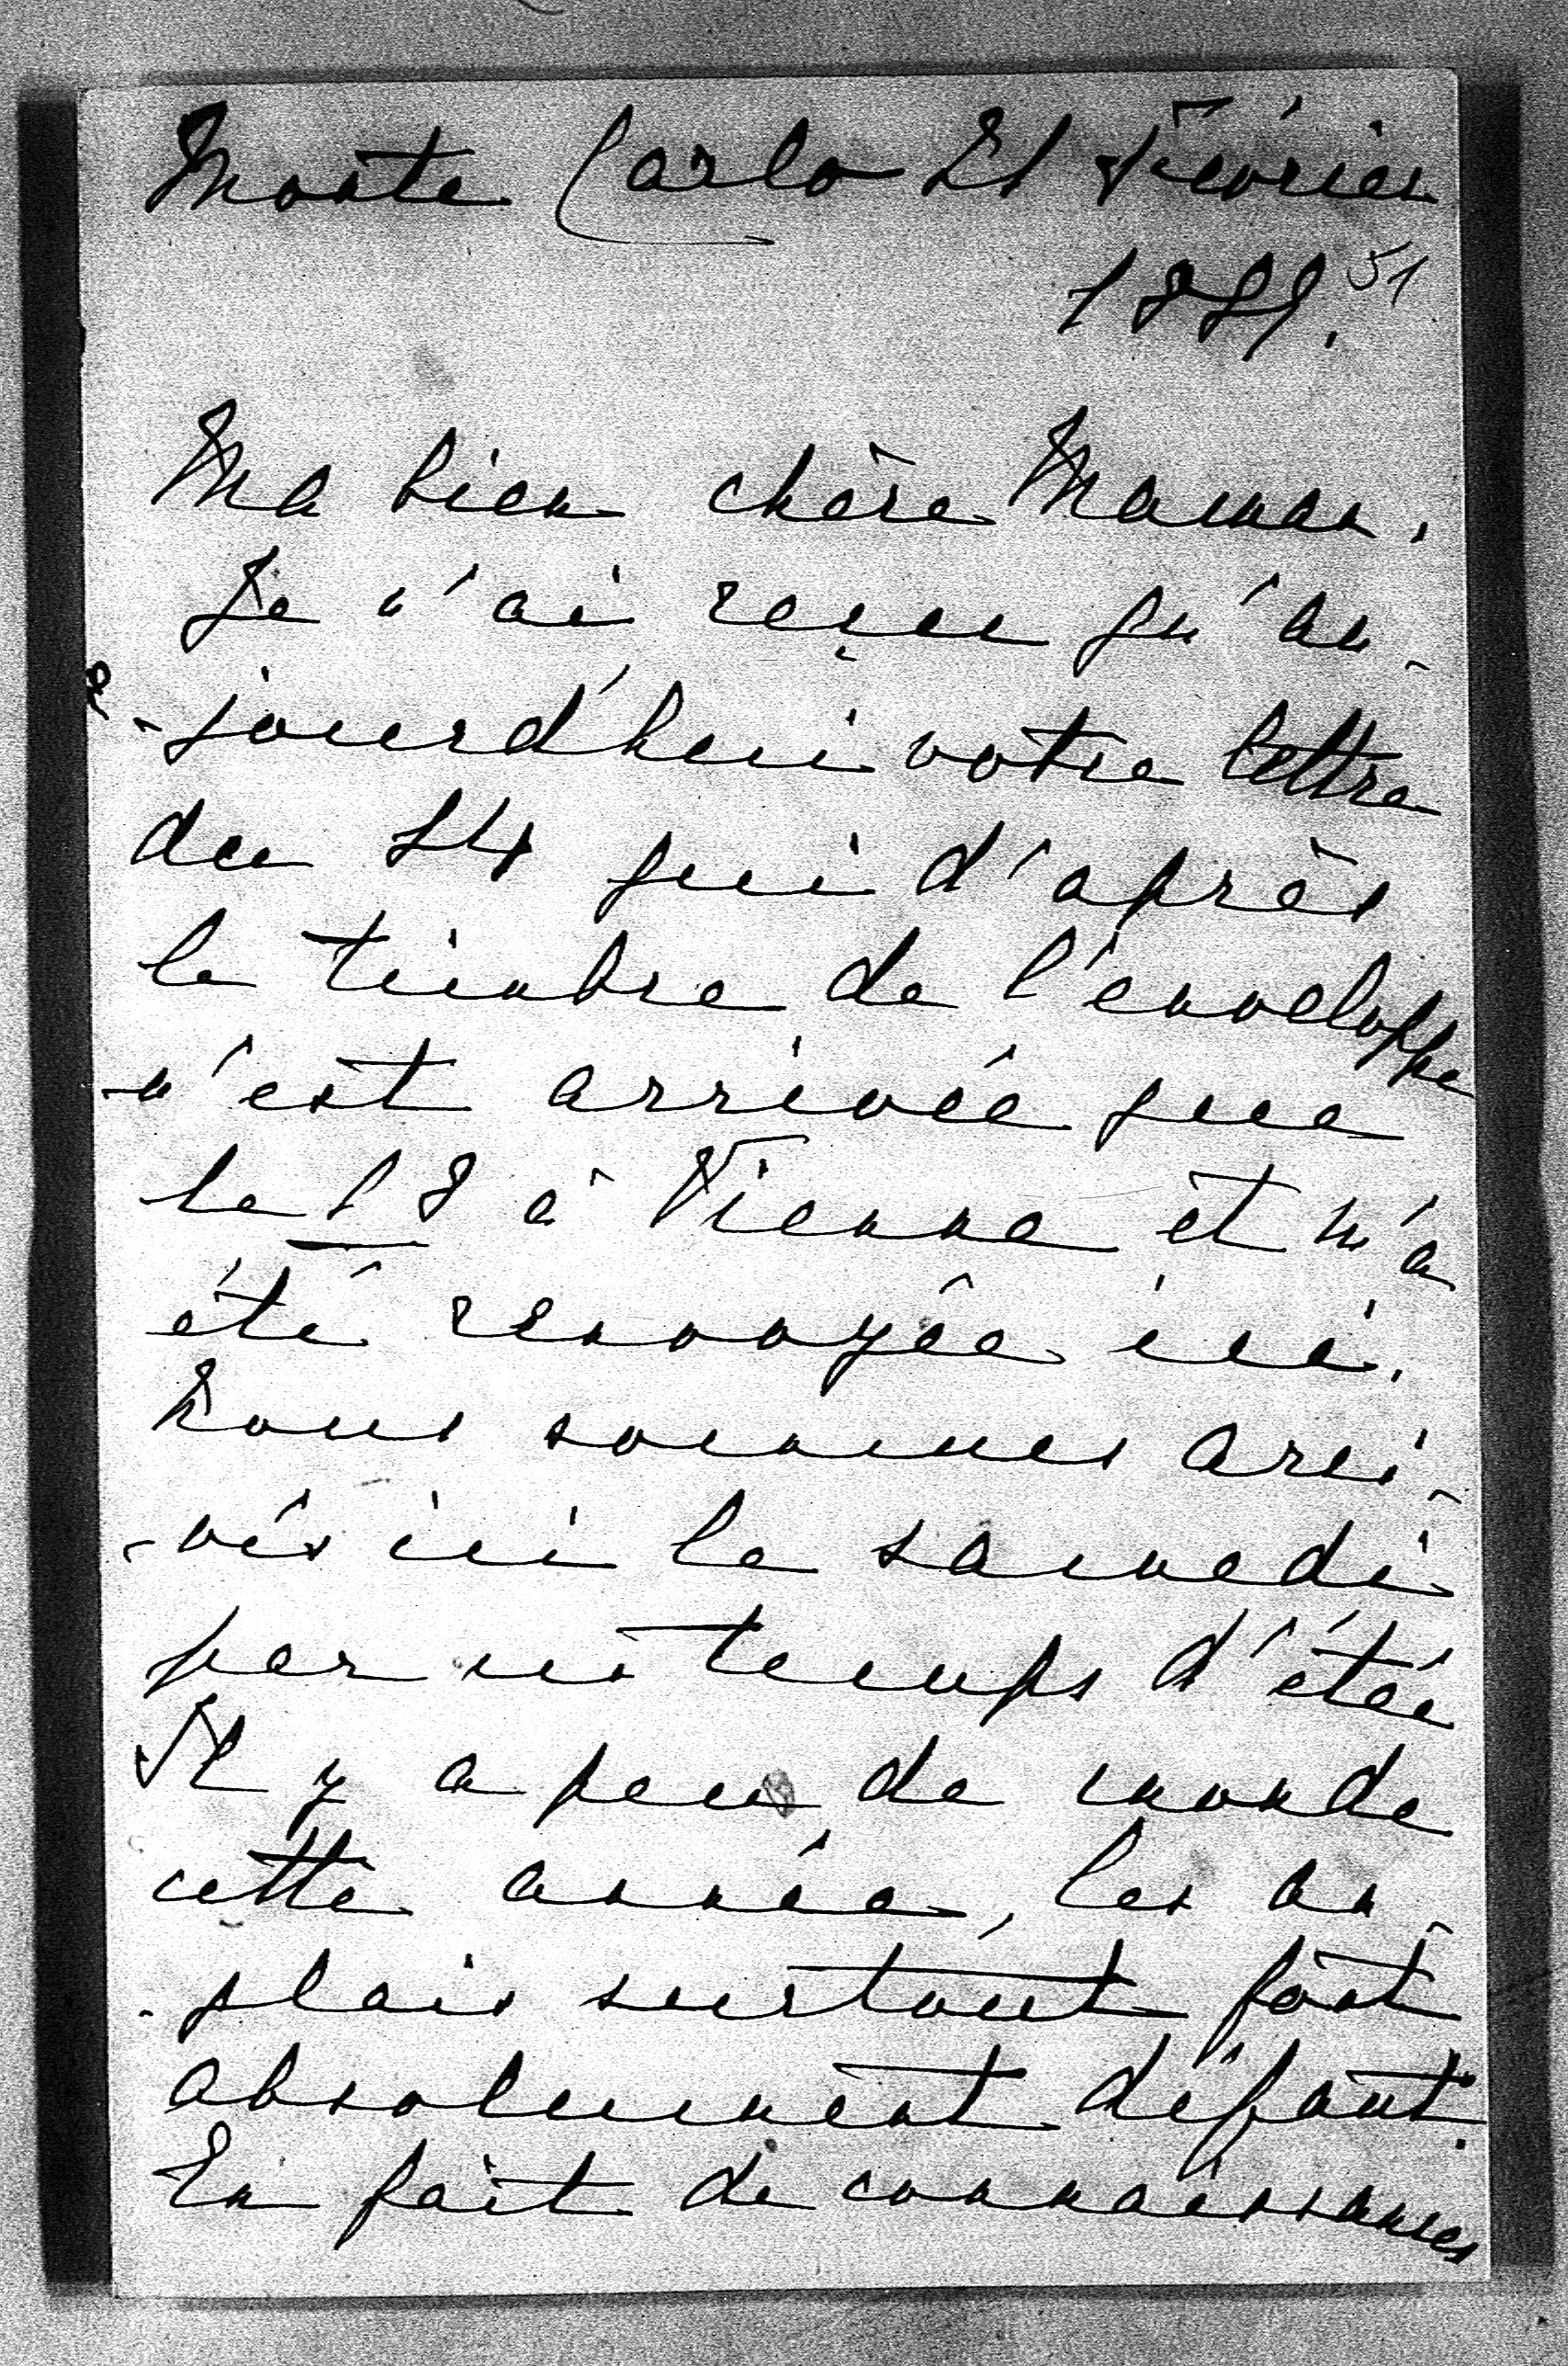 Monte Carlo 21 Février
51
Ma bien chère Maman.
Je n'ai reçue qu'au-
-jourd'hui votre lettre
du 14 qui d'après
le timbre de l'enveloppe
n'est arrivée que
le 18 à Vienne et m'a
été renvoyée ici.
Nous sommes arri-
-vés ici le samedi
par un temps d'étée
Il y a peu de monde
cette année, les an-
-glais surtout font
absolument défaut.
En fait de connaissances